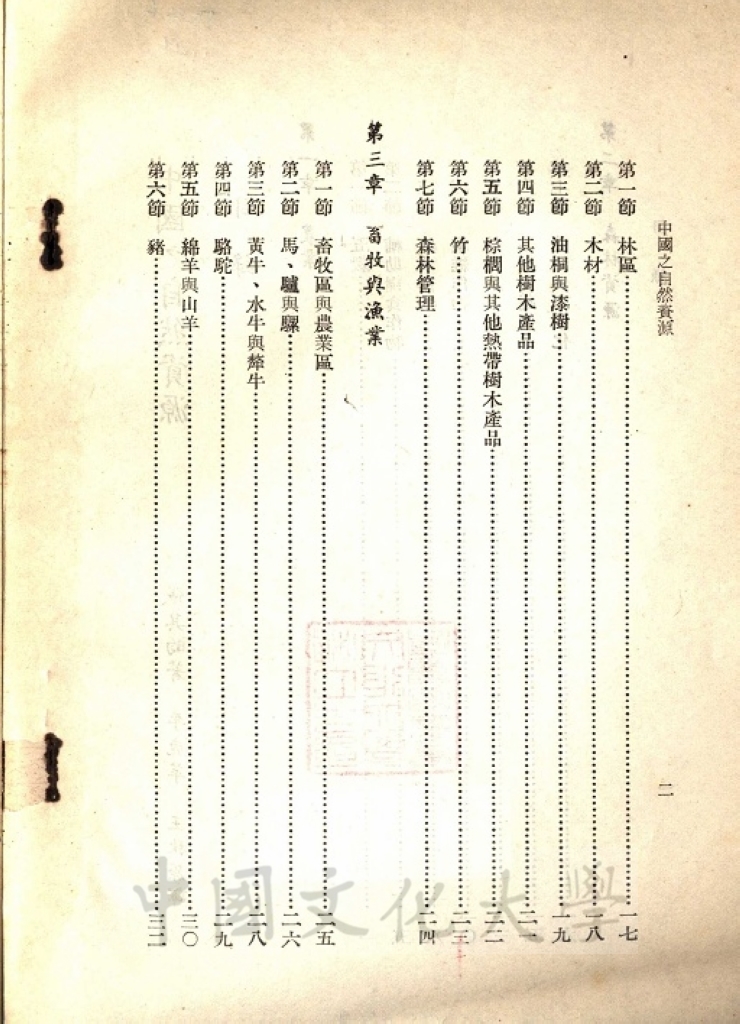 中國之自然資源
二
第一節 林區……一七
第二節 木材……一八
第三節 油桐與漆樹……一九
第四節 其他樹木產品……二一
第五節 棕櫚與其他熱帶樹木產品……二二
第六節 竹……二三
第七節 森林管理……二四
第三章 畜牧與漁業
第一節 畜牧區與農業區……二五
第二節 馬、驢與騾……二六
第三節 黃牛、水牛與犛牛……二八
第四節 駱駝……二九
第五節 綿羊與山羊……三〇
第六節 豬……三二
中國文化大學